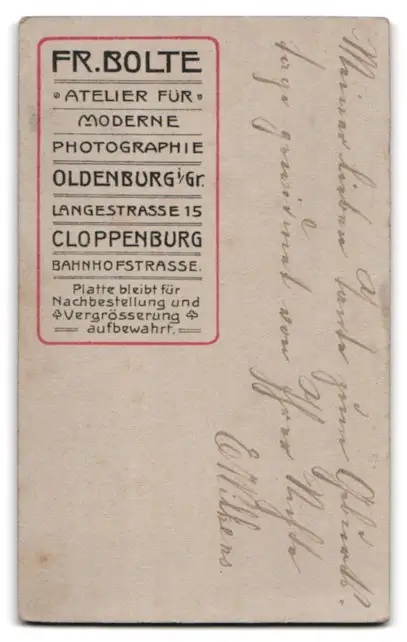 FR. BOLTE
ATELIER FÜR
MODERNE
PHOTOGRAPHIE
OLDENBURG i/Gr.
LANGESTRASSE 15
CLOPPENBURG
BAHNHOFSTRASSE.
Platte bleibt für
Nachbestellung und
Vergrösserung
aufbewahrt.
Meiner lieben Tante zum Geburts-
tage gewidmet von Ihrer Nichte
E. Wilkens.